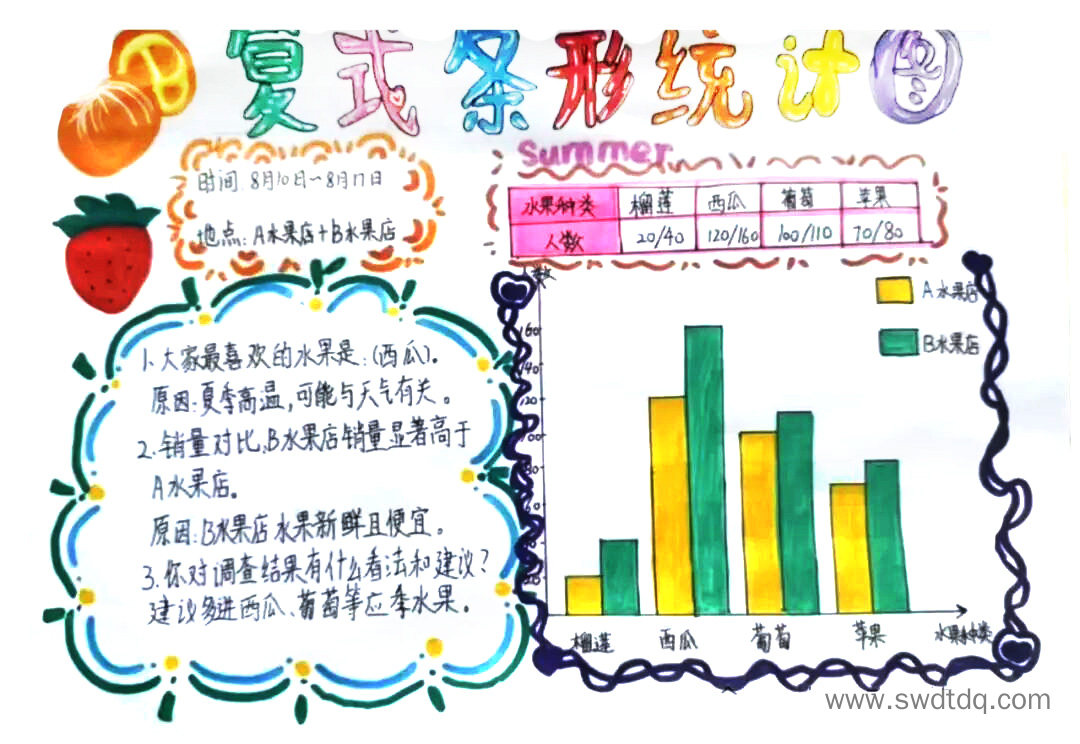 复式条形统计图
时间:8月10日~8月17日
地点:A水果店+B水果店
Summer
水果种类 榴莲 西瓜 葡萄 苹果
人数 20/40 120/160 100/110 70/80
1.大家最喜欢的水果是:(西瓜)。
原因:夏季高温,可能与天气有关。
2.销量对比,B水果店销量显著高于
A水果店。
原因:B水果店水果新鲜且便宜。
3.你对调查结果有什么看法和建议?
建议多进西瓜、葡萄等应季水果。
人数
A水果店
B水果店
160
140
120
100
80
60
榴莲 西瓜 葡萄 苹果 水果种类
www.swdtdq.com